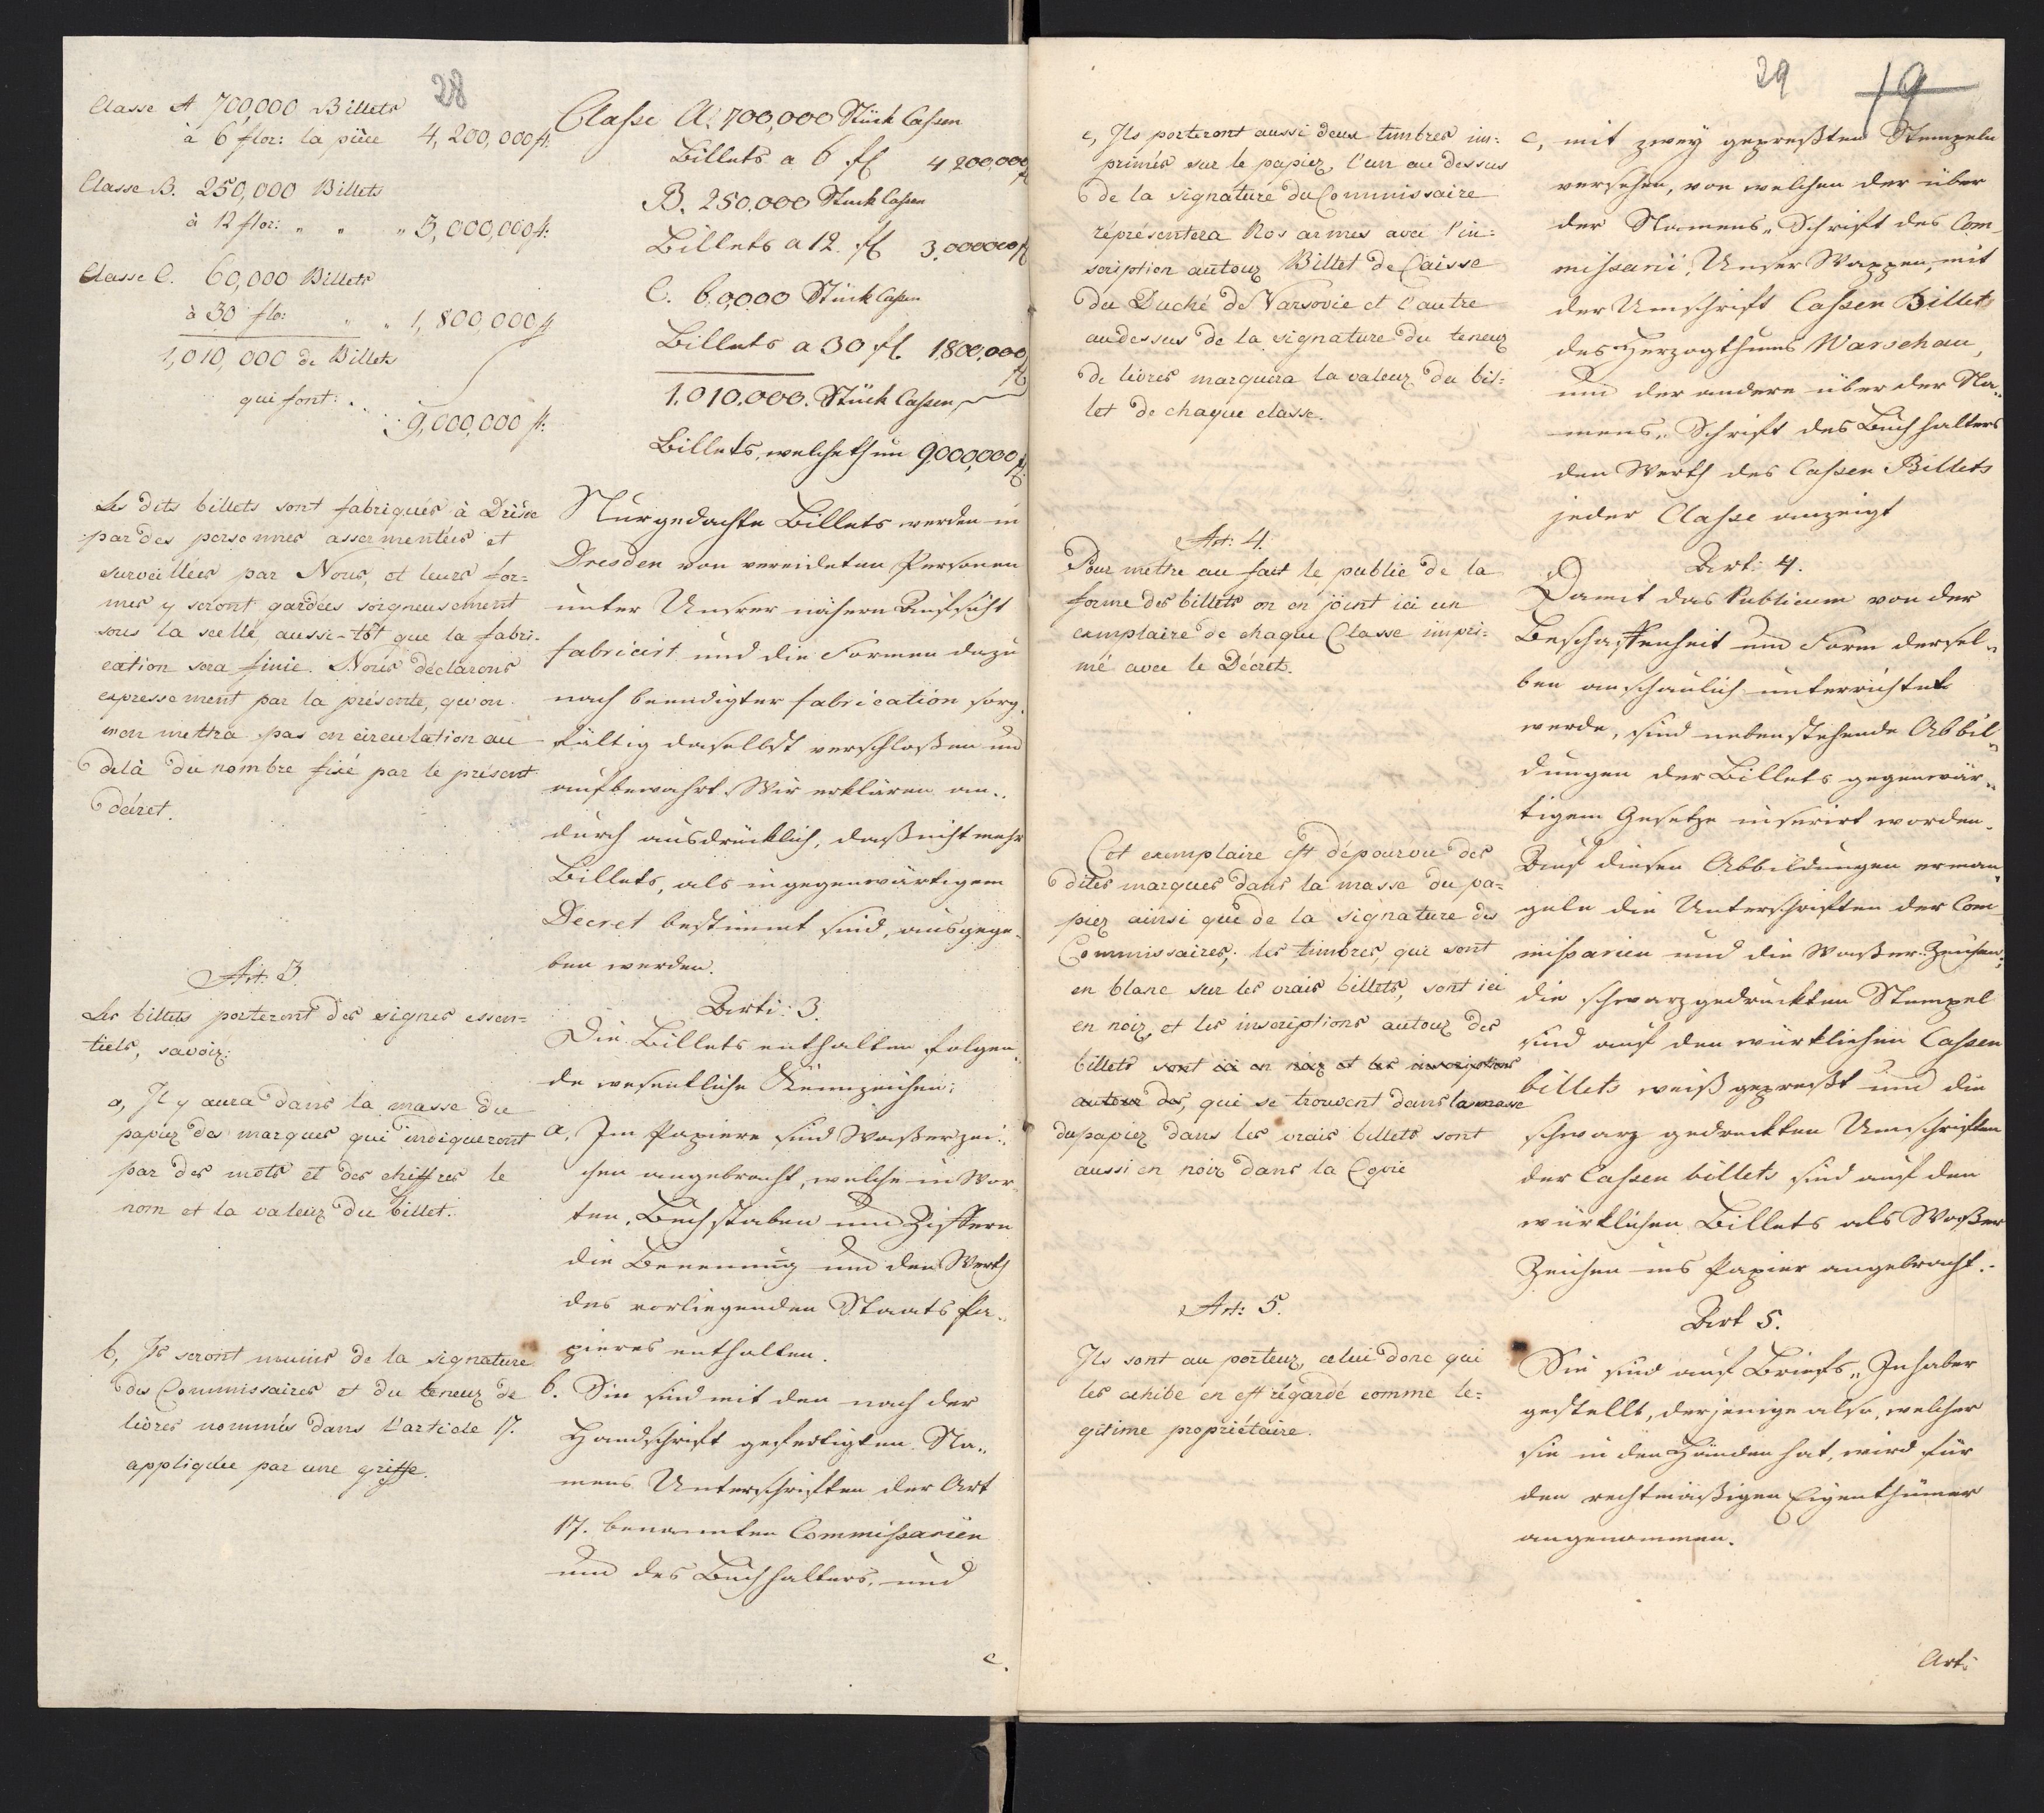 28
Classe A 700,000 Billets
à 6 flor: la pièce 4,200,000 fl:
Classe B. 250,000 Billets
à 12 flor: " " " 3,000,000 fl:
Classe C. 60,000 Billets
à 30 flo: " " 1,800,000 fl
1,010,000 de Billets
qui font: . .
9,000,000 fl:
Les dits billets sont fabriqués à Drêsde
par des personnes assermentées et
surveillées par Nous, et leurs for=
mes y seront gardées soigneusement
sous la scellé, aussi-tôt que la fabri-
cation sera finie. Nous déclarons
expressement par la présente, qu'on
n'en mettra pas en circulation au
delà du nombre fixé par le présent
décret.
Art: 3.
Les billets porteront des signes essen=
tiels, savoir:
a, Il y aura dans la masse du
papier des marques qui indiqueront
par des mots et des chiffres le
nom et la valeur du billet.
b, Ils seront munis de la signature
des Commissaires et du teneur de
livres nommés dans l'article 17.
appliquée par une griffe.
Classe A. 700,000 Stück Cassen
Billets a 6 fl 4 200,000 fl
B. 250.000 Stück Cassen
Billets a 12. fl 3,000000 fl
C. 60,000 Stück Cassen
Billets a 30 fl. 1,800,000 fl
1.010.000. Stück Cassen
Billets, welche thun 9,000,000 fl.
Nurgedachte Billets werden in
Dresden von vereideten Personen
unter Unsrer nähern Aufsicht
fabricirt und die Formen dazu
nach beendigter fabrication sorg-
fältig daselbst verschloßen und
aufbewahrt. Wir erklären an..
durch ausdrücklich, daß nicht mehr
Billets, als in gegenwärtigem
Decret bestimmt sind, ausgege-
ben werden.
Arti: 3.
Die Billets enthalten folgen-
de wesentliche Kennzeichen:
a, Im Papiere sind Waßerzei..
chen angebracht, welche in Wor-
ten, Buchstaben und Ziffern
die Benennung und den Werth
des vorliegenden Staats Pa..
pieres enthalten.
b. Sie sind mit den nach der
Handschrift gefertigten Na..
mens Unterschriften der Art
17. benannten Commissarien
und des Buchhalters, und
c.
29
19
c, Ils porteront aussi deux timbres im:
primés sur le papier, l'un au dessus
de la signature du Commissaire
réprésentera Nos armes avec l'in:
scription autour Billet de Caisse
du Duché de Varsovie et l'autre
audessus de la signature du teneur
de livres marquera la valeur du bil:
let de chaque classe.
Art: 4.
Pour mettre au fait le public de la
forme des billets on en joint ici un
exmplaire de chaque Classe impri:
mé avec le Décret.
Cet exmplaire est dépourvu des
dites marques dans la masse du pa=
pier ainsi que de la signature des
Commissaires; les timbres, qui sont
en blanc sur les vrais billets, sont ici
en noir, et les inscriptions autour des
billets sont ici en noir et les inscriptions
autour des, qui se trouvent dans la masse
du papier dans les vrais billets sont
aussi en noir dans la Copie
Art: 5.
Ils sont au porteur, celui donc qui
les exhibe en est régardé comme le=
gitime propriétaire.
c, mit zwey gepreßten Stempeln
versehen, von welchen der über
der Namens„Schrift des Com-
missarii, Unser Wappen, mit
der Umschrift Cassen Billets
des Herzogthums Warschau,
und der andere über der Na..
mens„Schrift des Buchhalters
den Werth des Cassen Billets
jeder Classe anzeigt
Art: 4.
Damit das Publicum von der
Beschaffenheit und Form dersel„
ben anschaulich unterrichtet
werde, sind nebenstehende Abbil„
dungen der Billets gegenwär„
tigem Gesetze inserirt worden.
Auf diesen Abbildungen erman„
geln die Unterschriften der Com-
missarien und die Waßer-Zeichen;
die schwarzgedruckten Stempel
sind auf den würklichen Cassen
billets weiß gepreßt und die
schwarz gedruckten Umschriften
der Cassen billets sind auf den
würklichen Billets als Waßer
Zeichen ins Papier angebracht..
Art 5.
Sie sind auf Briefs„Inhaber
gestellt, derjenige also, welcher
sie in den Händen hat, wird für
den rechtmäßigen Eigenthümer
angenommen.
Art: